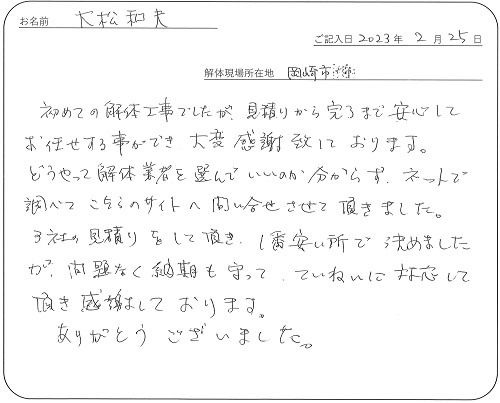 お名前 大松和夫
ご記入日 2023年 2月 25日
解体現場所在地 岡崎市
初めての解体工事でしたが、見積りから完了まで安心して
お任せする事ができ 大変感謝致しております。
どうやって解体業者を選んでいいのか分からず、ネットで
調べて こちらのサイトへ問い合せさせて頂きました。
3社の見積りをして頂き、1番安い所で決めました
が、問題なく納期も守って、ていねいに対応して
頂き感謝しております。
ありがとうございました。